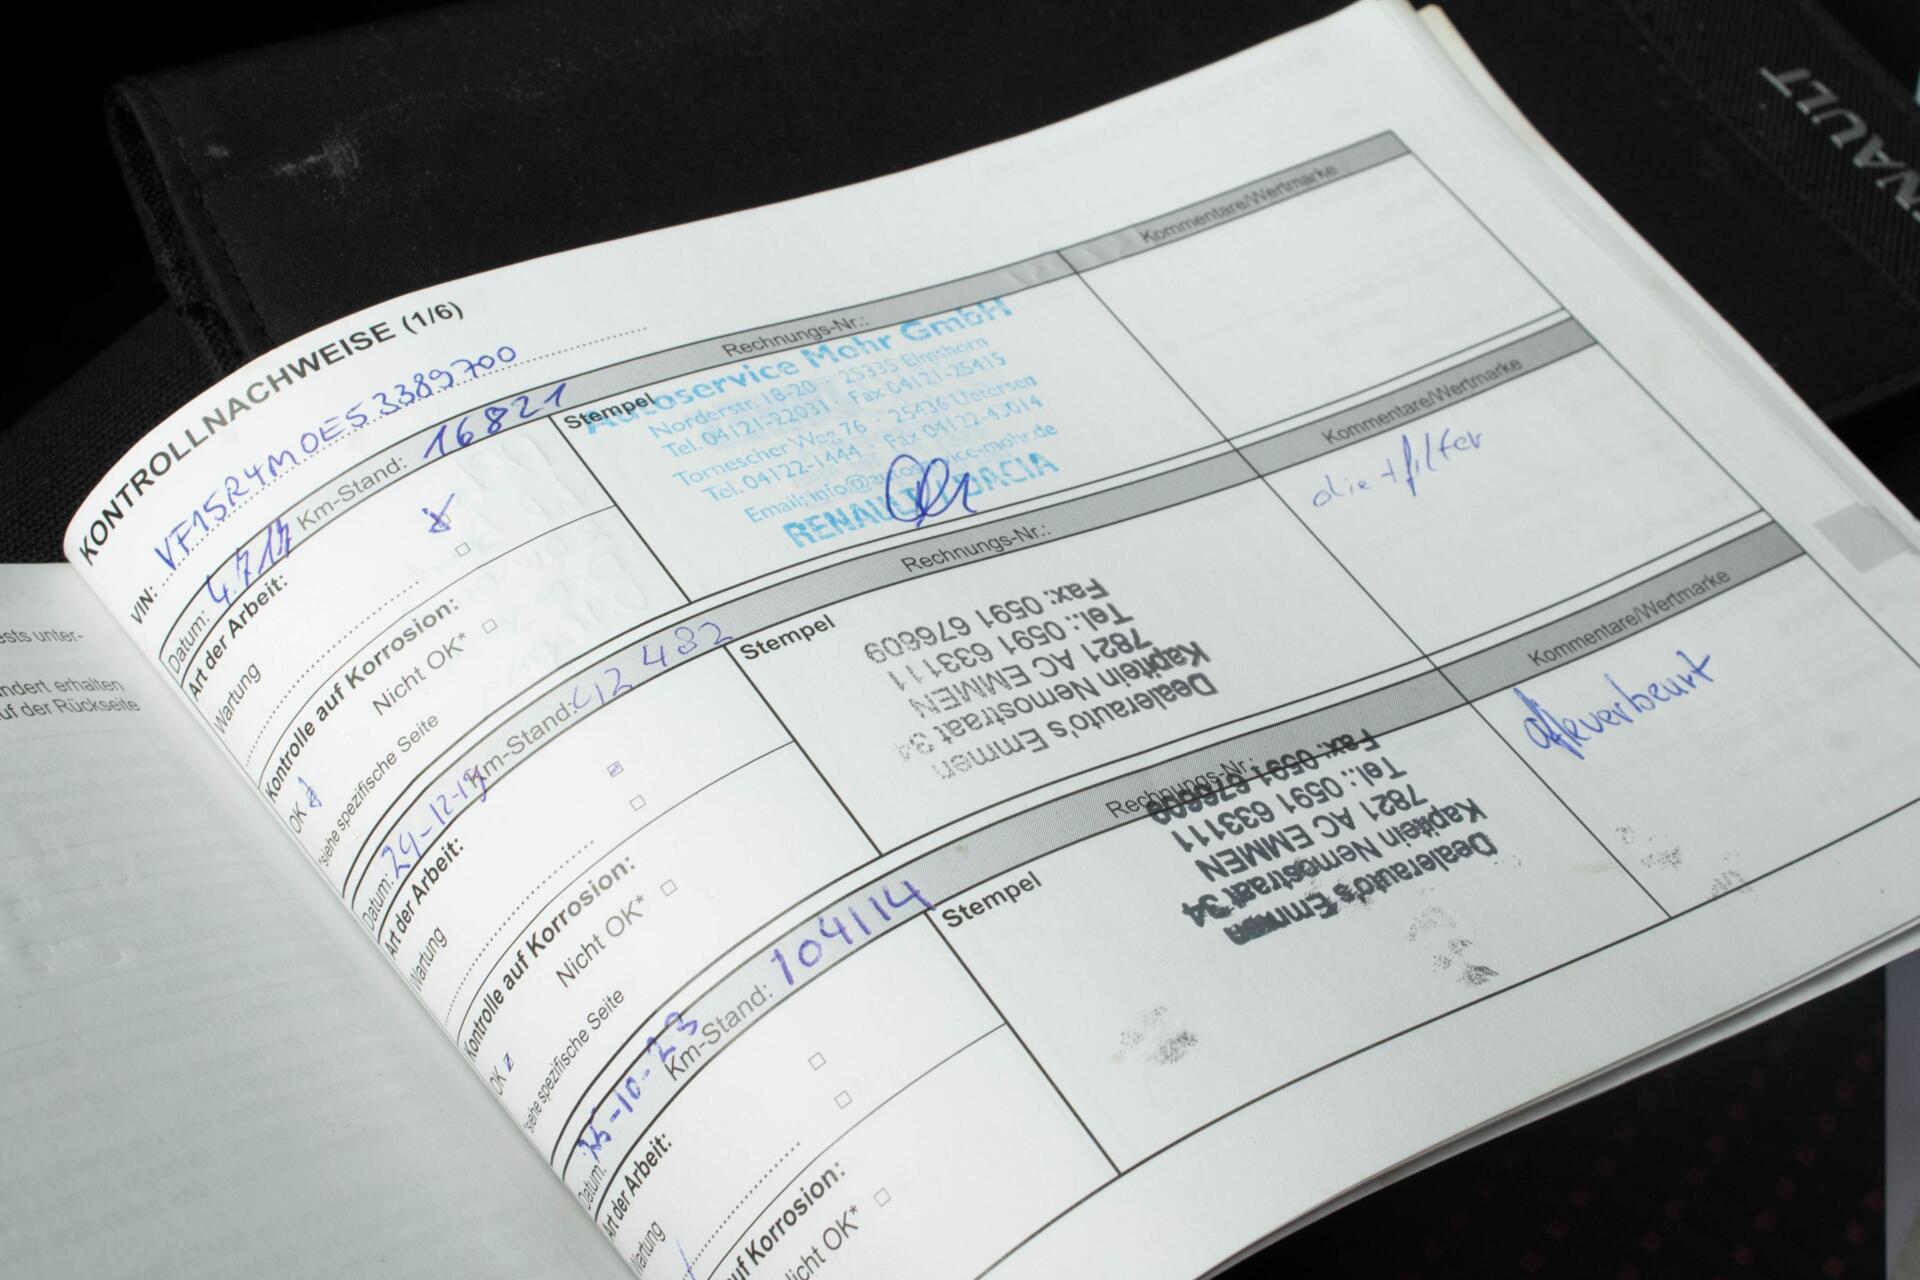 RENAULT
KONTROLLNACHWEISE (1/6)
VIN: VF15R4M0E53389700
Datum: 4.7.17 Km-Stand: 16821 Rechnungs-Nr.: Kommentare/Wertmarke
Art der Arbeit:
Wartung
Kontrolle auf Korrosion:
OK Nicht OK*
*siehe spezifische Seite
Stempel
Autoservice Mohr GmbH
Norderstr. 18-20 · 25335 Elmshorn
Tel. 04121-22031 Fax 04121-25415
Tornescher Weg 76 · 25436 Uetersen
Tel. 04122-1444 Fax 04122-43014
Email: info@autoservice-mohr.de
RENAULT DACIA
Datum: 24-12-19 Km-Stand: Rechnungs-Nr.: Kommentare/Wertmarke
Art der Arbeit:
Wartung
Kontrolle auf Korrosion:
OK Nicht OK*
*siehe spezifische Seite
Stempel
Dealerauto's Emmen
Kapitein Nemostraat 34
7821 AC EMMEN
Tel.: 0591 633111
Fax: 0591 676609
Datum: 26-10-23 Km-Stand: 104114 Rechnungs-Nr.: Kommentare/Wertmarke
Art der Arbeit:
Wartung
auf Korrosion:
Nicht OK*
Stempel
Dealerauto's Emmen
Kapitein Nemostraat 34
7821 AC EMMEN
Tel.: 0591 633111
Fax: 0591 676609
ests unter-
ndert erhalten
uf der Rückseite